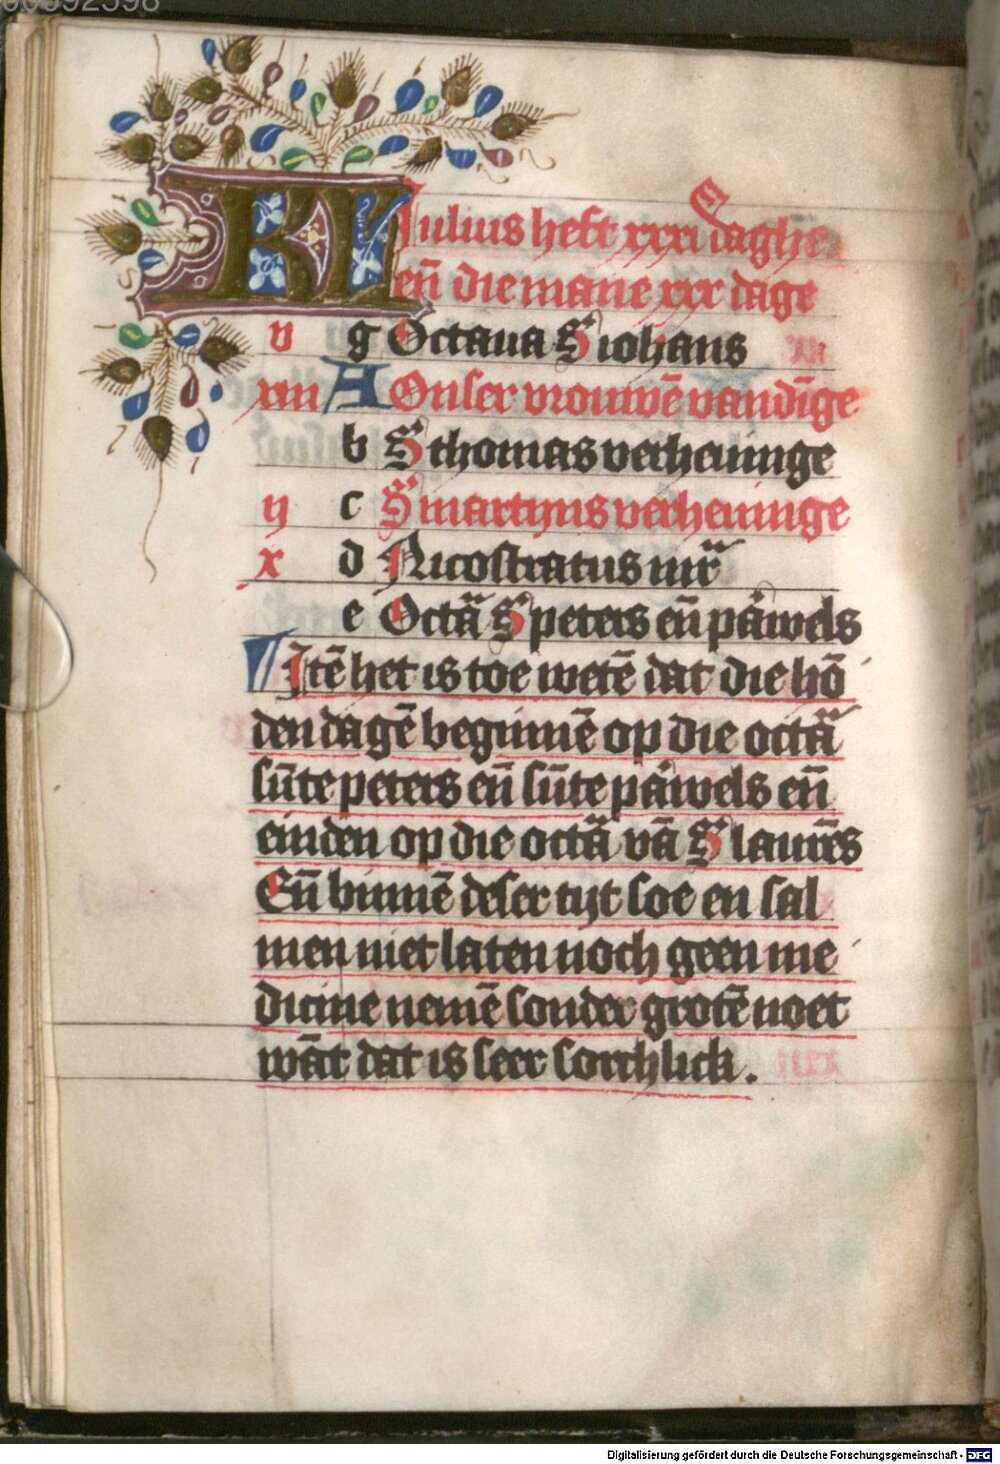 00392598
KL Iulius heft xxxi daghe
en̄ die mane xxx dage
v g Octaua S iohans
xiii A Onser vrouwē vandīge
b S thomas verheuinge
ij c S martijns verheuinge
x d Nicostratus mr̄
e Octā S peters en̄ pauwels
Itē het is toe wetē dat die hō
den dagē beginnē op die octā
sūte peters en̄ sūte pauwels en̄
einden op die octā vā S laurēs
En̄ binnē deser tijt soe en sal
men niet laten noch geen me
dicine nemē sonder grotē noet
wāt dat is seer sorchlick.
Digitalisierung gefördert durch die Deutsche Forschungsgemeinschaft - DFG